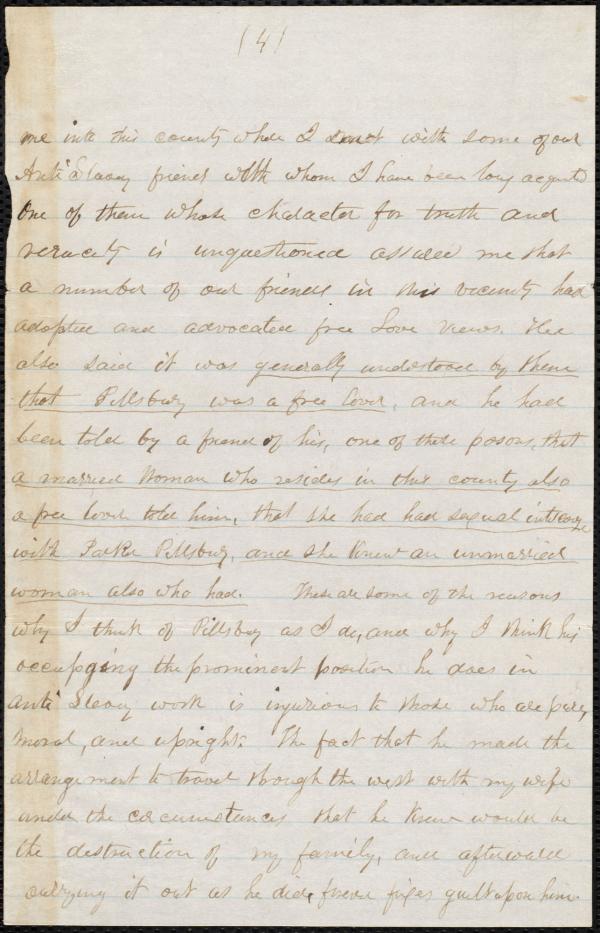 (4)
me into this county where I met with some of our
Anti Slavery friends with whom I have been long acquntd
One of them whose character for truth and
veracity is unquestioned assured me that
a number of our friends in this vicinity had
adopted and advocated free Love views. Hee
also said it was generally understood by them
that Pillsbury was a free lover, and he had
been told by a friend of his, one of these persons, that
a married woman who resides in this county also
a free lover told him, that she had had sexual intercorse
with Parker Pillsbury, and she knew an unmarried
woman also who had. These are some of the reasons
why I think of Pillsbury as I do, and why I think his
occupying the prominent position he does in
Anti Slavery work is injurious to those who are pure,
moral, and upright. The fact that he made the
arrangement to travel through the west with my wife
under the circumstances that he knew would be
the destruction of my family, and afterward
carrying it out as he did, forever fixes guilt upon him.